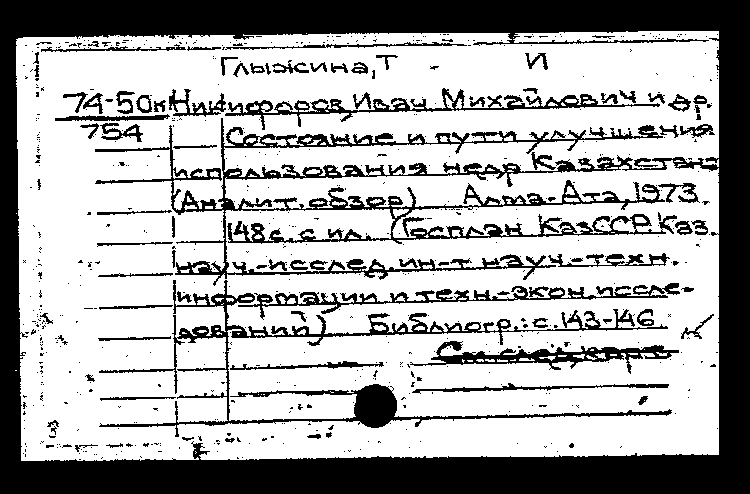 Глыжина, Т - И
74-50к Никифоров, Иван Михайлович и др.
754 Состояние и пути улучшения
использования недр Казахстана
(Аналит. обзор) Алма-Ата, 1973.
148 с. с ил. (Госплан КазССР. Каз.
науч.-исслед. ин-т науч.-техн.
информации и техн.-экон. иссле-
дований) Библиогр.: с. 143-146.
См. след. карт.